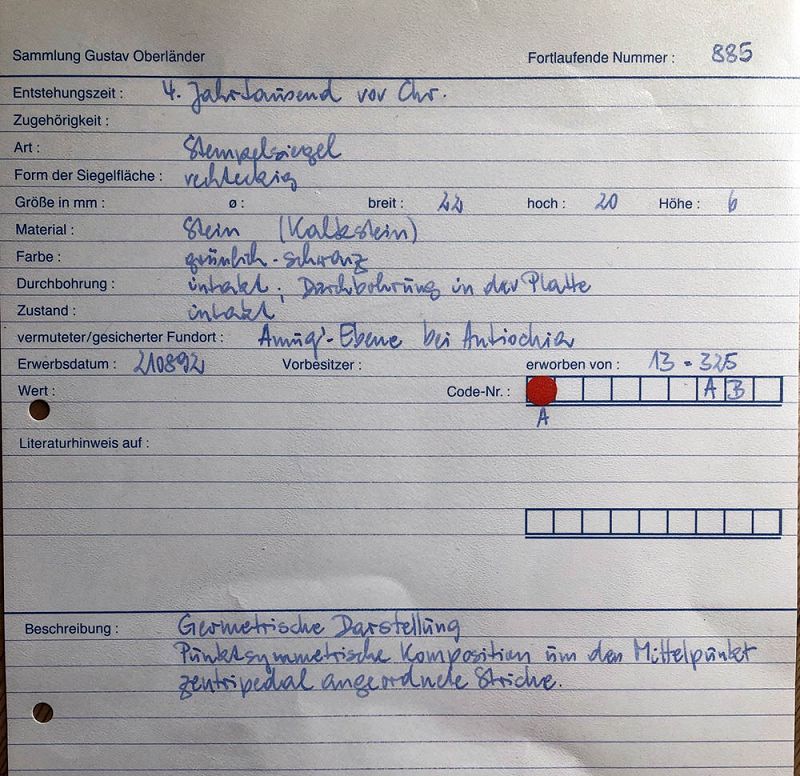 Sammlung Gustav Oberländer Fortlaufende Nummer : 885
Entstehungszeit : 4. Jahrtausend vor Chr.
Zugehörigkeit :
Art : Stempelsiegel
Form der Siegelfläche : rechteckig
Größe in mm : ø : breit : 22 hoch : 20 Höhe : 6
Material : Stein (Kalkstein)
Farbe : grünlich-schwarz
Durchbohrung : intakt; Durchbohrung in der Platte
Zustand : intakt
vermuteter/gesicherter Fundort : Amuq-Ebene bei Antiochia
Erwerbsdatum : 210892 Vorbesitzer : erworben von : 13 - 325
Wert : Code-Nr. : A B
A
Literaturhinweis auf :
Beschreibung : Geometrische Darstellung
Punktsymmetrische Komposition um den Mittelpunkt
zentripedal angeordnete Striche.